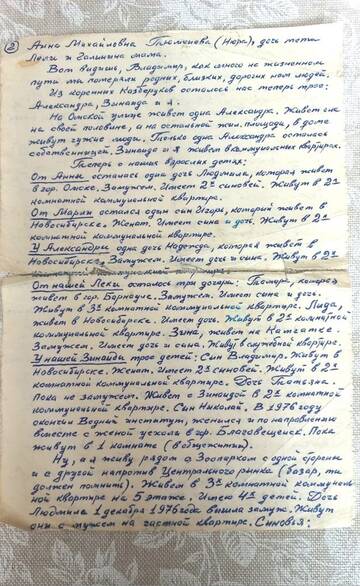 ② Анна Михайловна Тюменева (Нюра), дочь тети
Лёли и Галинина мама.
Вот видишь, Владимир, как много на жизненном
пути мы потеряли родных, близких, дорогих нам людей.
Из коренных осталось нас теперь трое:
Александра, Зинаида и я.
На Омской улице живет одна Александра. Живет она
на своей половине, а на остальной жил. площади, в доме
живут чужие люди. Только одна Александра осталась
собственницей. Зинаида и я живем в коммунальных квартирах.
Теперь о наших взрослых детях:
От Анны осталась одна дочь Людмила, которая живет
в гор. Омске. Замужем. Имеет 2х сыновей. Живут в 2х
комнатной коммунальной квартире.
От Марии остался один сын Игорь, который живет в
Новосибирске. Женат. Имеет сына и дочь. Живут в 2х
комнатной коммунальной квартире.
У Александры одна дочь Надежда, которая живет в
Новосибирске. Замужем. Имеет дочь и сына. Живут в 2х
комнатной коммунальной квартире.
От нашей Лёки осталось три дочери: Тамара, которая
живет в гор. Барнауле. Замужем. Имеет сына и дочь.
Живут в 3х комнатной коммунальной квартире. Лида,
живет в Новосибирске. Имеет дочь. Живут в 2х комнатной
коммунальной квартире. Зина, живет на Камчатке.
Замужем. Имеет дочь и сына. Живут в служебной квартире.
У нашей Зинаиды трое детей: Сын Владимир. Живут в
Новосибирске. Женат. Имеет 2х сыновей. Живут в 2х
комнатной коммунальной квартире. Дочь Татьяна.
Пока не замужем. Живет с Зинаидой в 2х комнатной
коммунальной квартире. Сын Николай. В 1976 году
окончил Водный институт, женился и по направлению
вместе с женой уехали в гор. Благовещенск. Пока
живут в 1 комнате (в общежитии).
Ну, а я живу рядом с Зоопарком с одной стороны
и с другой напротив Центрального рынка (базар, ты
должен помнить). Живем в 3х комнатной коммуналь
ной квартире на 5 этаже. Имею 4х детей. Дочь
Людмила 1 декабря 1976 года вышла замуж. Живут
они с мужем на частной квартире. Сыновья: